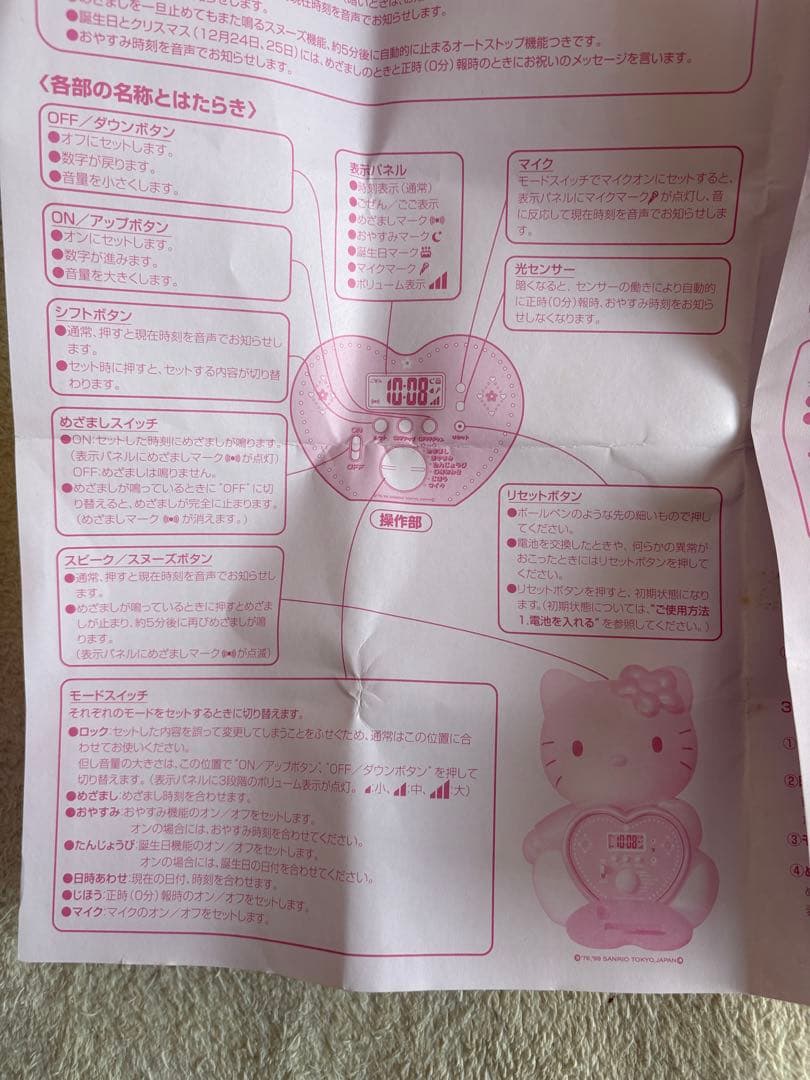 現在時刻を音声でお知らせします。
めざましを一旦止めてもまた鳴るスヌーズ機能、約5分後に自動的に止まるオートストップ機能つきです。
●誕生日とクリスマス(12月24日、25日)には、めざましのときと正時(0分)報時のときにお祝いのメッセージを言います。
●おやすみ時刻を音声でお知らせします。
〈各部の名称とはたらき〉
OFF/ダウンボタン
●オフにセットします。
●数字が戻ります。
●音量を小さくします。
ON/アップボタン
●オンにセットします。
●数字が進みます。
●音量を大きくします。
シフトボタン
●通常、押すと現在時刻を音声でお知らせし
ます。
●セット時に押すと、セットする内容が切り替
わります。
めざましスイッチ
●ON:セットした時刻にめざましが鳴ります。
(表示パネルにめざましマーク が点灯)
OFF:めざましは鳴りません。
●めざましが鳴っているときに"OFF"に切
り替えると、めざましが完全に止まります。
(めざましマーク が消えます。)
スピーク/スヌーズボタン
●通常、押すと現在時刻を音声でお知らせし
ます。
●めざましが鳴っているときに押すとめざま
しが止まり、約5分後に再びめざましが鳴
ります。
(表示パネルにめざましマーク が点滅)
表示パネル
●時刻表示(通常)
●ごぜん/ごご表示
●めざましマーク
●おやすみマーク
●誕生日マーク
●マイクマーク
●ボリューム表示
マイク
モードスイッチでマイクオンにセットすると、
表示パネルにマイクマーク が点灯し、音
に反応して現在時刻を音声でお知らせしま
す。
光センサー
暗くなると、センサーの働きにより自動的
に正時(0分)報時、おやすみ時刻をお知ら
せしなくなります。
10:08
ON
OFF
シフト
ON/アップ
OFF/ダウン
リセット
めざまし
おやすみ
たんじょうび
日時あわせ
じほう
マイク
操作部
リセットボタン
●ボールペンのような先の細いもので押し
てください。
●電池を交換したときや、何らかの異常が
おこったときにはリセットボタンを押して
ください。
●リセットボタンを押すと、初期状態になり
ます。(初期状態については、"ご使用方法
1.電池を入れる"を参照してください。)
モードスイッチ
それぞれのモードをセットするときに切り替えます。
●ロック:セットした内容を誤って変更してしまうことをふせぐため、通常はこの位置に合
わせてお使いください。
但し音量の大きさは、この位置で"ON/アップボタン"、"OFF/ダウンボタン"を押して
切り替えます。(表示パネルに3段階のボリューム表示が点灯。 :小、 :中、 :大)
●めざまし:めざまし時刻を合わせます。
●おやすみ:おやすみ機能のオン/オフをセットします。
オンの場合には、おやすみ時刻を合わせてください。
●たんじょうび:誕生日機能のオン/オフをセットします。
オンの場合には、誕生日の日付を合わせてください。
●日時あわせ:現在の日付、時刻を合わせます。
●じほう:正時(0分)報時のオン/オフをセットします。
●マイク:マイクのオン/オフをセットします。
10:08
©'76,'99 SANRIO TOKYO,JAPAN©
3
①
②
③
④